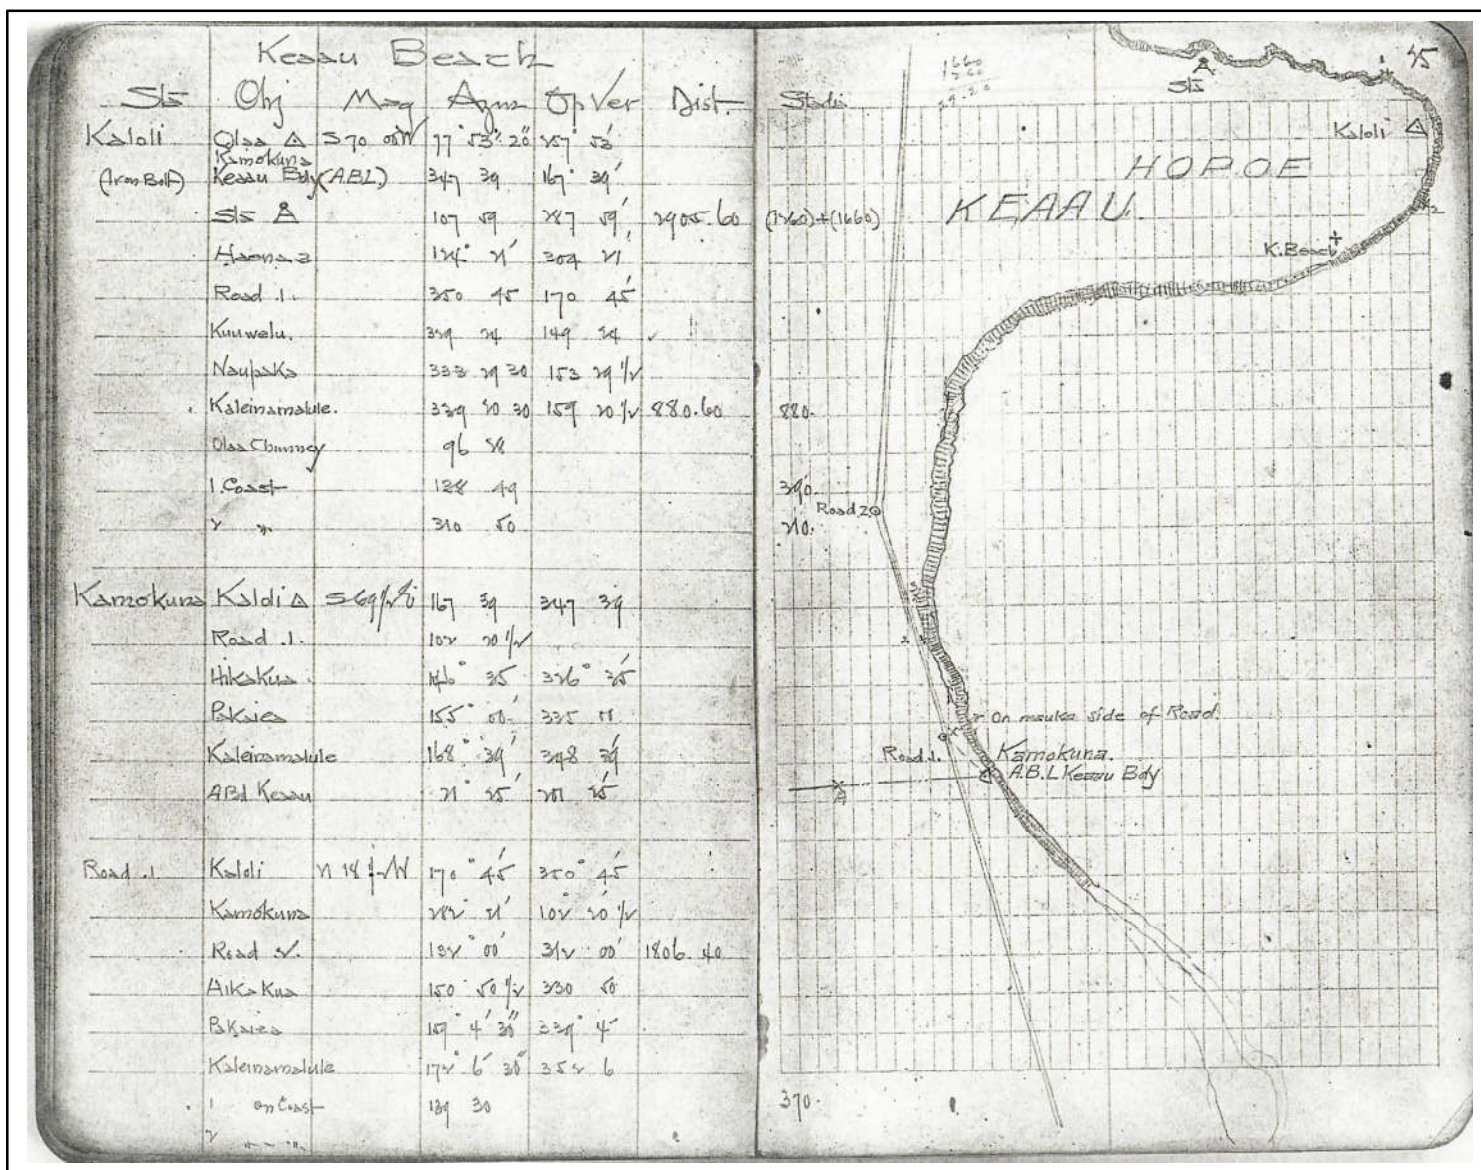 Keaau Beach
Sta Obj Mag Azm Op Ver Dist. Stadia
Kaloli Olaa △ S 70 00 W 77° 53' 20" 257° 53'
(Iron Bolt) Kamokuna
Keaau Bdy (A.B.L.) 347 39 167° 39'
Sta 107 59 287 59' 2905.60 (1260)+(1660)
Haena 2 124° 21' 304 21'
Road .1. 350 45 170 45'
Kuuwelu. 329 24 149 24
Naupaka 333 29 30 153 29 1/2
Kaleinamalule. 339 20 30 159 20 1/2 880.60 880.
Olaa Chimney 96 58
1. Coast 128 49 390.
2 " 310 50 210.
Kamokuna Kaloli △ 167 39 347 39
Road .1. 102 20 1/2
Hikakua. 146° 35 326° 35'
Pakaiea 155° 00' 335
Kaleinamalule 168° 39' 348 39'
ABL Keaau 21° 25' 201 25'
Road .1 Kaloli N 18 W 170° 45' 350° 45'
Kamokuna 282° 21' 102° 20' 1/2
Road 2. 132° 00' 312 00' 1806.40
Hikakua 150 50 1/2 330 50
Pakaiea 159° 4' 30" 339° 4'
Kaleinamalule 172° 6' 30" 352 6
1 on Coast 139 30 370.
2 " "
1660
1260
45
Sta
Kaloli
HOPOE
KEAAU.
K. Beach
Road 2
On mauka side of Road.
Road .1.
Kamokuna.
A.B.L Keaau Bdy